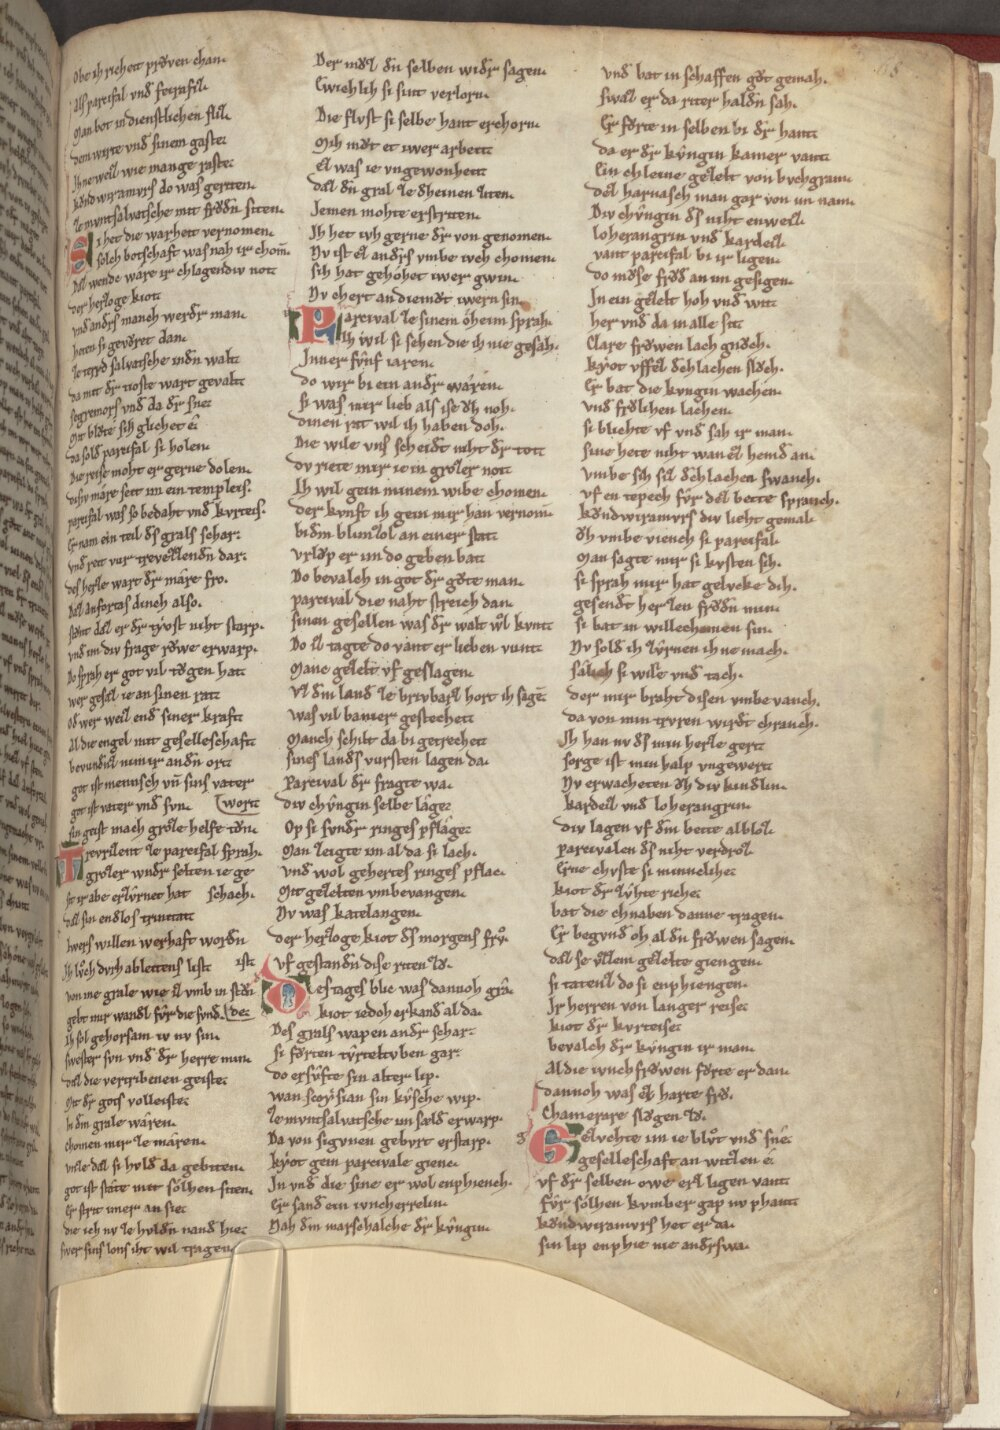 Obe ih rihtett prv̊ven chan.
Als parcifal vnd feirafiz.
Man bot in dienstlichen fliz.
dem wirte vnd sinem gaste.
Ihne weiz wie mange raste.
kvndwiramvrs do was geritten.
ze mvntsalvatsche mit frv̊dn siten.
Si het die warheit vernomen.
solch botschaft was nah ir chom̄.
Daz wende wære ir chlagendiv not.
der herzoge kiot.
vnd anders manch werder man.
heten si gevv̊ret dan.
ze terre salvatsche indn walt.
da mit dr tioste wart gevalt.
segremors vnd da dr sne.
mit blv̊te sih glichet e.
da solde parcifal si holen.
Die reise moht er gerne dolen.
disiv mære seit im ein templeis.
parcifal was so bedaht vnd kvrteis.
Er nam ein teil ds grals schar.
vnd reit fvr trevrizenden dar.
des herze wart dr mære fro.
Daz anfortas dinch also.
stv̊nt daz er dr tyost niht starp.
vnd im div frage rv̊we erwarp.
Do sprah er got vil tv̊gen hat.
wer gesaz ie an sinen rat.
Od wer weiz end siner kraft.
Al die engel mit geselleschaft.
bevindent nimir an dn ort.
got ist mennisch vn̄ sins vater
got ist vater vnd svn. wort
sin geist mach groze helfe tv̊n.
Trevrizent ze parcifal sprah.
grozer wndr selten ie ge
sit ir abe erzvrnet hat schach.
daz sin endlos trinitat.
Iwers willen werhaft wordn
Ih lv̊ch dvrh ableitens list ist
von me grale wie ez vmb in stv̊n
gebt mir wandl fv̊r die svnd. de.
Ih sol gehorsam iv nv sin.
swester svn vnd dr herre min.
daz die vertribenen geiste.
Mit dr gots volleiste.
In dm grale wæren.
chomen mir ze mæren.
vnze daz si hvld da gebiten.
got ist stæte mit sölhen siten.
Er strit imer an sie.
die ich iv ze hvldn nand hie.
swer sins lons iht wil tragen.
Der mvz dn selben widr sagen.
Ewiehlih si sint verlorn.
Die flvst si selbe hant erchorn.
Mih mv̊t et iwer arbeit.
Ez was ie vngewonheit.
daz dn gral ze dheinen ziten.
Iemen mohte erstriten.
Ih het ivh gerne dr von genomen.
Nv ist ez andrs vmbe ivch chomen.
sih hat gehöhet iwer gwin.
Nv chert an diemv̊t iwern sin.
Parcival ze sinem öheim sprah.
Ih wil si sehen die ih nie gesah.
Inner fvnf iaren.
do wir bi ein andr wâren.
si was mir lieb als ise v̊h noh.
dinen rat wil ih haben doh.
Die wile vns scheidt niht dr tot.
dv riete mir ie in grozer not.
Ih wil gein minem wibe chomen.
der kvnft ih gein mir han vernom̄.
bi dm blimizol an einer stat.
vrlop er im do geben bat.
Do bevalch in got dr gv̊te man.
parcival die naht streich dan.
sinen gesellen was dr walt wol kvnt.
Do iz tagte do vant er lieben vunt.
Manc gezelt vf geslagen.
Vz dm land ze brvbarz hort ih sagē
was vil banier gestechet.
Manch schilt da bi getrechet.
sines lands vursten lagen da.
Parcival dr fragte wa.
div chvngin selbe læge.
Op si svndr ringes pflæge.
Man zeigte im al da si lach.
vnd wol gehertes ringes pflac.
Mit gezelten vmbevangen.
Nv was katelangen.
der herzoge kiot ds morgens frv̊.
vf gestandn dise riten zv̊.
Des tages blic was dannoh gra.
kiot iedoh erkand al da.
Des grals wapen andr schar.
si fv̊rten tvrteltvben gar.
do ersvfte sin alter lip.
wan scoysian sin kvsche wip.
ze mvntsalvatsche im sæld erwarp.
Da von sigvnen gebvrt erstarp.
kyot gein parcivale gienc.
In vnd die sine er wol enphiench.
Er sand ein ivncherrelin.
Nah dm marschalche dr kvngin.
vnd bat in schaffen gv̊t gemah.
swaz er da riter haldn sah.
Er fv̊rte in selben bi dr hant.
da er dr kvngin kamer vant.
Ein chleine gezelt von bvchgram.
dez harnasch man gar von im nam.
Div chvngin ds niht enweiz.
loherangrin vnd kardeiz.
vant parcifal bi ir ligen.
do mv̊se frv̊d an im gesigen.
In ein gezelt hoh vnd wit.
her vnd da in alle sit.
Clare frv̊wen lach gnv̊ch.
kyot vffez dechlachen slv̊ch.
Er bat die kvngin wachen.
vnd frv̊lichen lachen.
si blichte vf vnd sah ir man.
sine hete niht wan ez hemd an.
vmbe sih siz dechlachen swanch.
vf en tepech fvr dez bette spranch.
kvndwiramvrs div lieht gemal.
v̊h vmbe viench si parcifal.
Man sagte mir si kvsten sih.
si sprah mir hat gelvcke dih.
gesendt herzen frv̊dn min.
si bat in willechomen sin.
Nv sold ih zvrnen ih ne mach.
sælich si wile vnd tach.
der mir braht disen vmbe vanch.
da von min trvren wirdt chranch.
Ih han nv ds min herze gert.
sorge ist min halp vngewert.
Nv erwacheten v̊h div kindlin.
kardeiz vnd loherangrin.
div lagen vf dm bette al bloz.
parcivalen ds niht verdroz.
Erne chvste si minneliche.
kiot dr zvhte riche.
bat die chnaben danne tragen.
Er begvnd oh al dn frv̊wen sagen.
daz se vzzem gezelte giengen.
si tatenz do si enphiengen.
Ir herren von langer reise.
kiot dr kvrteise.
bevalch dr kvngin ir man.
Al die ivnchfrv̊wen fv̊rte er dan.
dannoh was ez harte frv̊.
Chamerare slv̊gen zv̊.
Gezvchte im ie blv̊t vnd sne.
geselleschaft an witzen e.
vf dr selben owe erz ligen vant.
fv̊r sölhen kvmber gap nv phant.
kvndwiramvrs het er da.
sin lip enphie nie andrswa.